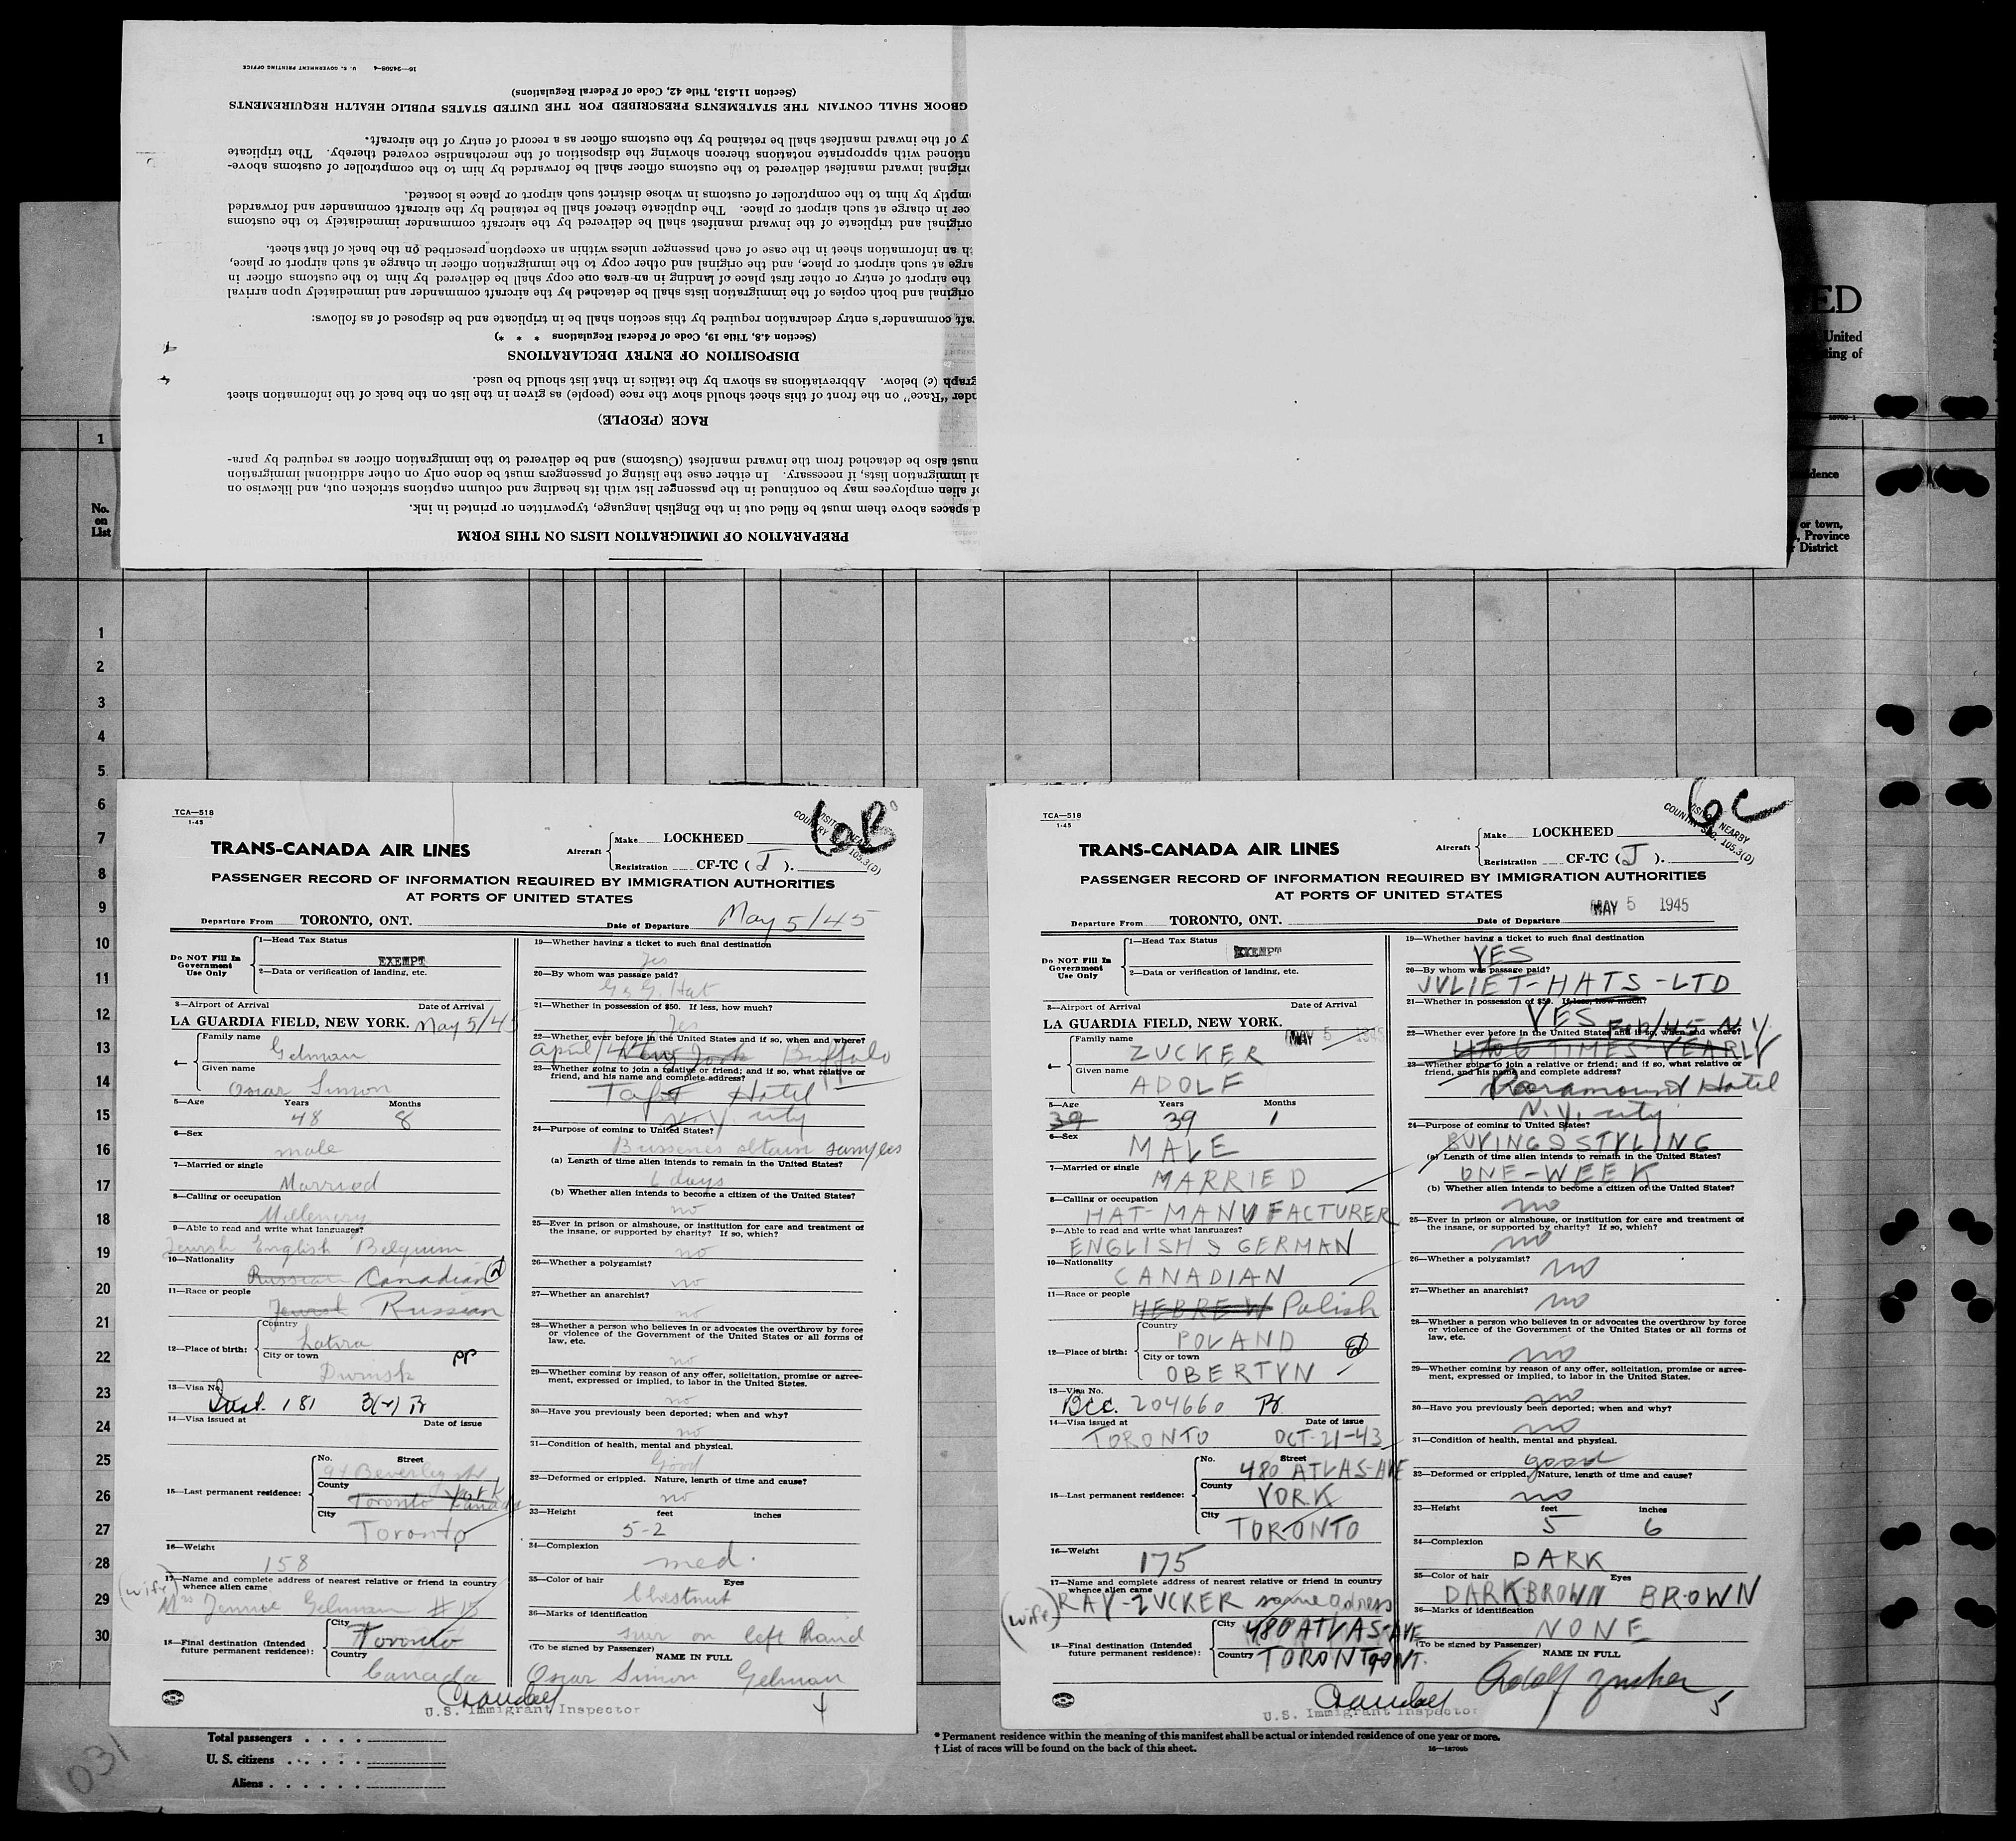 16—24598-4 U. S. GOVERNMENT PRINTING OFFICE
(Section 11.513, Title 42, Code of Federal Regulations)
GBOOK SHALL CONTAIN THE STATEMENTS PRESCRIBED FOR THE UNITED STATES PUBLIC HEALTH REQUIREMENTS
y of the inward manifest shall be retained by the customs officer as a record of entry of the aircraft.
tioned with appropriate notations thereon showing the disposition of the merchandise covered thereby. The triplicate
original inward manifest delivered to the customs officer shall be forwarded by him to the comptroller of customs above-
mptly by him to the comptroller of customs in whose district such airport or place is located.
cer in charge at such airport or place. The duplicate thereof shall be retained by the aircraft commander and forwarded
original and triplicate of the inward manifest shall be delivered by the aircraft commander immediately to the customs
th an information sheet in the case of each passenger unless within an exception prescribed on the back of that sheet.
arge at such airport or place, and the original and other copy to the immigration officer in charge at such airport or place,
the airport of entry or other first place of landing in an area one copy shall be delivered by him to the customs officer in
original and both copies of the immigration lists shall be detached by the aircraft commander and immediately upon arrival
raft commander's entry declaration required by this section shall be in triplicate and be disposed of as follows:
(Section 4.8, Title 19, Code of Federal Regulations * * *)
DISPOSITION OF ENTRY DECLARATIONS
graph (c) below. Abbreviations as shown by the italics in that list should be used.
nder "Race" on the front of this sheet should show the race (people) as given in the list on the back of the information sheet
RACE (PEOPLE)
must also be detached from the inward manifest (Customs) and be delivered to the immigration officer as required by para-
al immigration lists, if necessary. In either case the listing of passengers must be done only on other additional immigration
of alien employees may be continued in the passenger list with its heading and column captions stricken out, and likewise on
d spaces above them must be filled out in the English language, typewritten or printed in ink.
PREPARATION OF IMMIGRATION LISTS ON THIS FORM
ED
United
ting of
dence
or town,
, Province
District
1
No.
on
List
1
2
3
4
5
6
7
8
9
10
11
12
13
14
15
16
17
18
19
20
21
22
23
24
25
26
27
28
29
30
TCA—518
1-45
6B
TRANS-CANADA AIR LINES
Aircraft
Make LOCKHEED
Registration CF-TC ( J ).
PASSENGER RECORD OF INFORMATION REQUIRED BY IMMIGRATION AUTHORITIES
AT PORTS OF UNITED STATES
Departure From TORONTO, ONT. Date of Departure May 5/45
Do NOT Fill In
Government
Use Only
1—Head Tax Status
EXEMPT
2—Data or verification of landing, etc.
3—Airport of Arrival Date of Arrival
LA GUARDIA FIELD, NEW YORK. May 5/45
4— Family name
Gelman
Given name
Oscar Simon
5—Age Years Months
48 8
6—Sex
male
7—Married or single
Married
8—Calling or occupation
Millenery
9—Able to read and write what languages?
Jewish English Belgium
10—Nationality
Russian Canadian
11—Race or people
Jewish Russian
12—Place of birth: Country
Latvia
City or town PP
Dwinsk
13—Visa No.
181 3(2) Br
14—Visa issued at Date of issue
15—Last permanent residence: No. Street
94 Beverley St
County York
Toronto Canada
City
Toronto
16—Weight
158
17—Name and complete address of nearest relative or friend in country
whence alien came
(wife)
Mrs Jennie Gelman # 15
18—Final destination (Intended
future permanent residence):
City
Toronto
Country
Canada
19—Whether having a ticket to such final destination
Yes
20—By whom was passage paid?
G & G. Hat
21—Whether in possession of $50. If less, how much?
Yes
22—Whether ever before in the United States and if so, when and where?
April/44 New York Buffalo
23—Whether going to join a relative or friend; and if so, what relative or
friend, and his name and complete address?
Taft Hotel
N.Y. city
24—Purpose of coming to United States?
Bussenes obtain samples
(a) Length of time alien intends to remain in the United States?
6 days
(b) Whether alien intends to become a citizen of the United States?
no
25—Ever in prison or almshouse, or institution for care and treatment of
the insane, or supported by charity? If so, which?
no
26—Whether a polygamist?
no
27—Whether an anarchist?
no
28—Whether a person who believes in or advocates the overthrow by force
or violence of the Government of the United States or all forms of
law, etc.
no
29—Whether coming by reason of any offer, solicitation, promise or agree-
ment, expressed or implied, to labor in the United States.
no
30—Have you previously been deported; when and why?
no
31—Condition of health, mental and physical.
Good
32—Deformed or crippled. Nature, length of time and cause?
no
33—Height feet inches
5-2
34—Complexion
med.
35—Color of hair Eyes
Chestnut
36—Marks of identification
on left hand
(To be signed by Passenger)
NAME IN FULL
Oscar Simon Gelman
U.S. Immigrant Inspector
TCA—518
1-45
6C
VISITOR NEARBY
COUNTRY SEC. 105.3(D)
TRANS-CANADA AIR LINES
Aircraft
Make LOCKHEED
Registration CF-TC ( J ).
PASSENGER RECORD OF INFORMATION REQUIRED BY IMMIGRATION AUTHORITIES
AT PORTS OF UNITED STATES
Departure From TORONTO, ONT. Date of Departure MAY 5 1945
Do NOT Fill In
Government
Use Only
1—Head Tax Status
EXEMPT
2—Data or verification of landing, etc.
3—Airport of Arrival Date of Arrival
LA GUARDIA FIELD, NEW YORK. MAY 5 1945
4— Family name
ZUCKER
Given name
ADOLF
5—Age Years Months
39 39 1
6—Sex
MALE
7—Married or single
MARRIED
8—Calling or occupation
HAT-MANUFACTURER
9—Able to read and write what languages?
ENGLISH & GERMAN
10—Nationality
CANADIAN
11—Race or people
HEBREW Polish
12—Place of birth: Country
POLAND
City or town
OBERTYN
13—Visa No.
BCC. 204660 Br
14—Visa issued at Date of issue
TORONTO OCT-21-43
15—Last permanent residence: No. Street
480 ATLAS-AVE
County
YORK
City
TORONTO
16—Weight
175
17—Name and complete address of nearest relative or friend in country
whence alien came
(wife)
RAY-ZUCKER same address
18—Final destination (Intended
future permanent residence):
City 480 ATLAS-AVE
Country TORONTO ONT.
19—Whether having a ticket to such final destination
YES
20—By whom was passage paid?
JULIET-HATS-LTD
21—Whether in possession of $50. If less, how much?
YES
22—Whether ever before in the United States and if so, when and where?
Feb/45 N.Y.
4 to 6 TIMES-YEARLY
23—Whether going to join a relative or friend; and if so, what relative or
friend, and his name and complete address?
Paramount Hotel
N.Y. city
24—Purpose of coming to United States?
BUYING & STYLING
(a) Length of time alien intends to remain in the United States?
ONE-WEEK
(b) Whether alien intends to become a citizen of the United States?
no
25—Ever in prison or almshouse, or institution for care and treatment of
the insane, or supported by charity? If so, which?
no
26—Whether a polygamist?
no
27—Whether an anarchist?
no
28—Whether a person who believes in or advocates the overthrow by force
or violence of the Government of the United States or all forms of
law, etc.
no
29—Whether coming by reason of any offer, solicitation, promise or agree-
ment, expressed or implied, to labor in the United States.
no
30—Have you previously been deported; when and why?
no
31—Condition of health, mental and physical.
good
32—Deformed or crippled. Nature, length of time and cause?
no
33—Height feet inches
5 6
34—Complexion
DARK
35—Color of hair Eyes
DARKBROWN BROWN
36—Marks of identification
NONE
(To be signed by Passenger)
NAME IN FULL
Adolf Zucker
5
U.S. Immigrant Inspector
Total passengers . . . .
U. S. citizens . . . . .
Aliens . . . . . .
031
* Permanent residence within the meaning of this manifest shall be actual or intended residence of one year or more.
† List of races will be found on the back of this sheet.